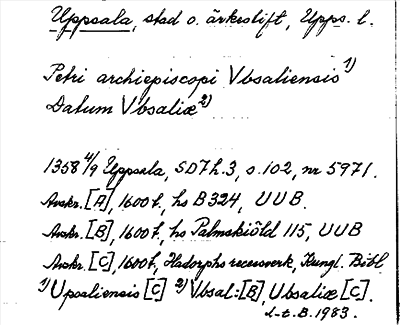 Uppsala, stad o. ärkestift, Upps. l.
Petri archiepiscopi Vbsaliensis 1)
Datum Vbsaliæ 2)
1358 4/9 Uppsala, SD7h.3, s.102, nr 5971.
Avskr. [A], 1600t, hs B324, UUB.
Avskr. [B], 1600t, hs Palmskiöld 115, UUB
Avskr. [C], 1600t, Hadorphs recessverk, Kungl. Bibl.
1) Upsaliensis [C] 2) Vbsal: [B], Ubsaliæ [C].
L-t. B. 1983.